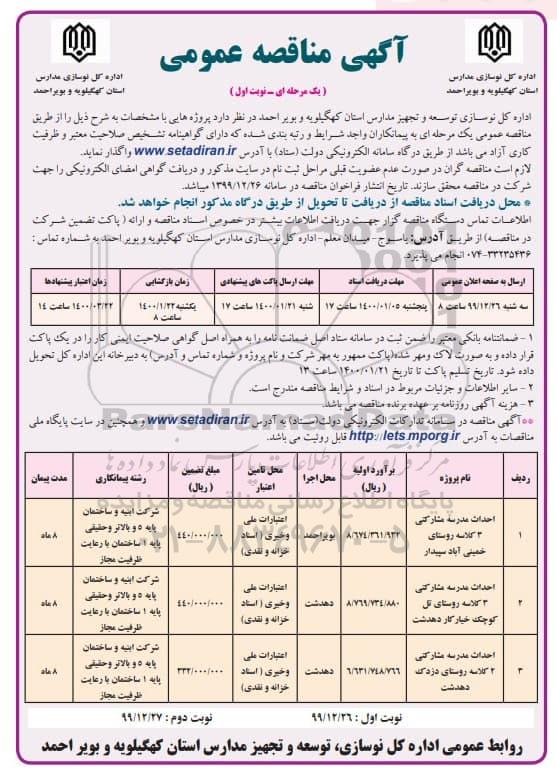 آگهی مناقصه عمومی
( یک مرحله ای ــ نوبت اول )
اداره کل نوسازی مدارس
استان کهگیلویه و بویراحمد
اداره کل نوسازی مدارس
استان کهگیلویه و بویراحمد
اداره کل نوسازی توسعه و تجهیز مدارس استان کهگیلویه و بویر احمد در نظر دارد پروژه هایی با مشخصات به شرح ذیل را از طریق
مناقصه عمومی یک مرحله ای به پیمانکاران واجد شرایط و رتبه بندی شده که دارای گواهینامه تشخیص صلاحیت معتبر و ظرفیت
کاری آزاد می باشد از طریق درگاه سامانه الکترونیکی دولت (ستاد) با آدرس www.setadiran.ir واگذار نماید.
لازم است مناقصه گران در صورت عدم عضویت قبلی مراحل ثبت نام در سایت مذکور و دریافت گواهی امضای الکترونیکی را جهت
شرکت در مناقصه محقق سازند. تاریخ انتشار فراخوان مناقصه در سامانه ۱۳۹۹/۱۲/۲۶ میباشد.
* محل دریافت اسناد مناقصه از دریافت تا تحویل از طریق درگاه مذکور انجام خواهد شد.
اطلاعات تماس دستگاه مناقصه گزار جهت دریافت اطلاعات بیشتر در خصوص اسناد مناقصه و ارائه ( پاکت تضمین شرکت
در مناقصه) از طریق آدرس: یاسوج – میدان معلم – اداره کل نوسازی مدارس استان کهگیلویه و بویر احمد به شماره تماس :
۰۷۴-۳۳۲۳۵۴۳۶ انجام می پذیرد.
ارسال به صفحه اعلان عمومی | مهلت دریافت اسناد | مهلت ارسال پاکت های پیشنهادی | زمان بازگشایی | زمان اعتبار پیشنهادها
سه شنبه ۹۹/۱۲/۲۶ ساعت ۸ | پنجشنبه ۱۴۰۰/۰۱/۰۵ ساعت ۱۷ | شنبه ۱۴۰۰/۰۱/۲۱ ساعت ۱۷ | یکشنبه ۱۴۰۰/۱/۲۲ ساعت ۸ | ۱۴۰۰/۰۳/۲۲ ساعت ۱۴
۱ – ضمانتنامه بانکی معتبر را ضمن ثبت در سامانه ستاد اصل ضمانت نامه را به همراه اصل گواهی صلاحیت ایمنی کار را در یک پاکت
قرار داده و به صورت لاک ومهر شده(پاکت ممهور به مهر شرکت و نام پروژه و شماره تماس و آدرس) به دبیرخانه این اداره کل تحویل
داده شود. تاریخ تسلیم پاکت تا تاریخ ۱۴۰۰/۰۱/۲۱ ساعت ۱۳
۲ – سایر اطلاعات و جزئیات مربوط در اسناد و شرایط مناقصه مندرج است.
۳ – هزینه آگهی روزنامه بر عهده برنده مناقصه می باشد.
**آگهی مناقصه در سامانه تدارکات الکترونیکی دولت(ستاد) به آدرس www.setadiran.ir و همچنین در سایت پایگاه ملی
مناقصات به آدرس http://iets.mporg.ir قابل رویت می باشد.
ردیف | نام پروژه | برآورد اولیه ( ریال) | محل اجرا | محل تامین اعتبار | مبلغ تضمین ( ریال) | رشته پیمانکاری | مدت پیمان
۱ | احداث مدرسه مشارکتی ۳ کلاسه روستای خمینی آباد سپیدار | ۸/۶۷۴/۳۶۱/۹۳۲ | بویراحمد | اعتبارات ملی وخیری ( اسناد خزانه و نقدی) | ۴۴۰/۰۰۰/۰۰۰ | شرکت ابنیه و ساختمان پایه ۵ و بالاتر وحقیقی پایه ۱ ساختمان با رعایت ظرفیت مجاز | ۸ ماه
۲ | احداث مدرسه مشارکتی ۳ کلاسه روستای تل کوچک خیارکار دهدشت | ۸/۷۶۹/۷۳۴/۸۸۰ | دهدشت | اعتبارات ملی وخیری ( اسناد خزانه و نقدی) | ۴۴۰/۰۰۰/۰۰۰ | شرکت ابنیه و ساختمان پایه ۵ و بالاتر وحقیقی پایه ۱ ساختمان با رعایت ظرفیت مجاز | ۸ ماه
۳ | احداث مدرسه مشارکتی ۲ کلاسه روستای دزدک دهدشت | ۶/۶۳۱/۷۴۸/۷۶۶ | دهدشت | اعتبارات ملی وخیری ( اسناد خزانه و نقدی) | ۳۳۲/۰۰۰/۰۰۰ | شرکت ابنیه و ساختمان پایه ۵ و بالاتر وحقیقی پایه ۱ ساختمان با رعایت ظرفیت مجاز | ۸ ماه
نوبت اول : ۹۹/۱۲/۲۶ نوبت دوم : ۹۹/۱۲/۲۷
روابط عمومی اداره کل نوسازی، توسعه و تجهیز مدارس استان کهگیلویه و بویر احمد
پایگاه اطلاع رسانی مناقصه و مزایده
۰۲۱-۸۸۳۴۹۶۷۰-۵